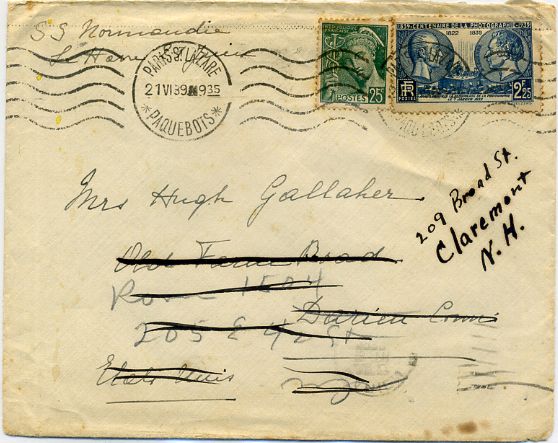 SS Normandie
PARIS ST LAZARE
21 VI 39 1935
* PAQUEBOTS *
POSTES 25c
1839 CENTENAIRE DE LA PHOTOGRAPHIE 1939
1822 1839
RF
POSTES
2F25
Mrs Hugh Gallaher
209 Broad St.
Claremont
N.H.
Old Farm Road
Room 1504
Darien Conn
205 E 42 St
Etats Unis